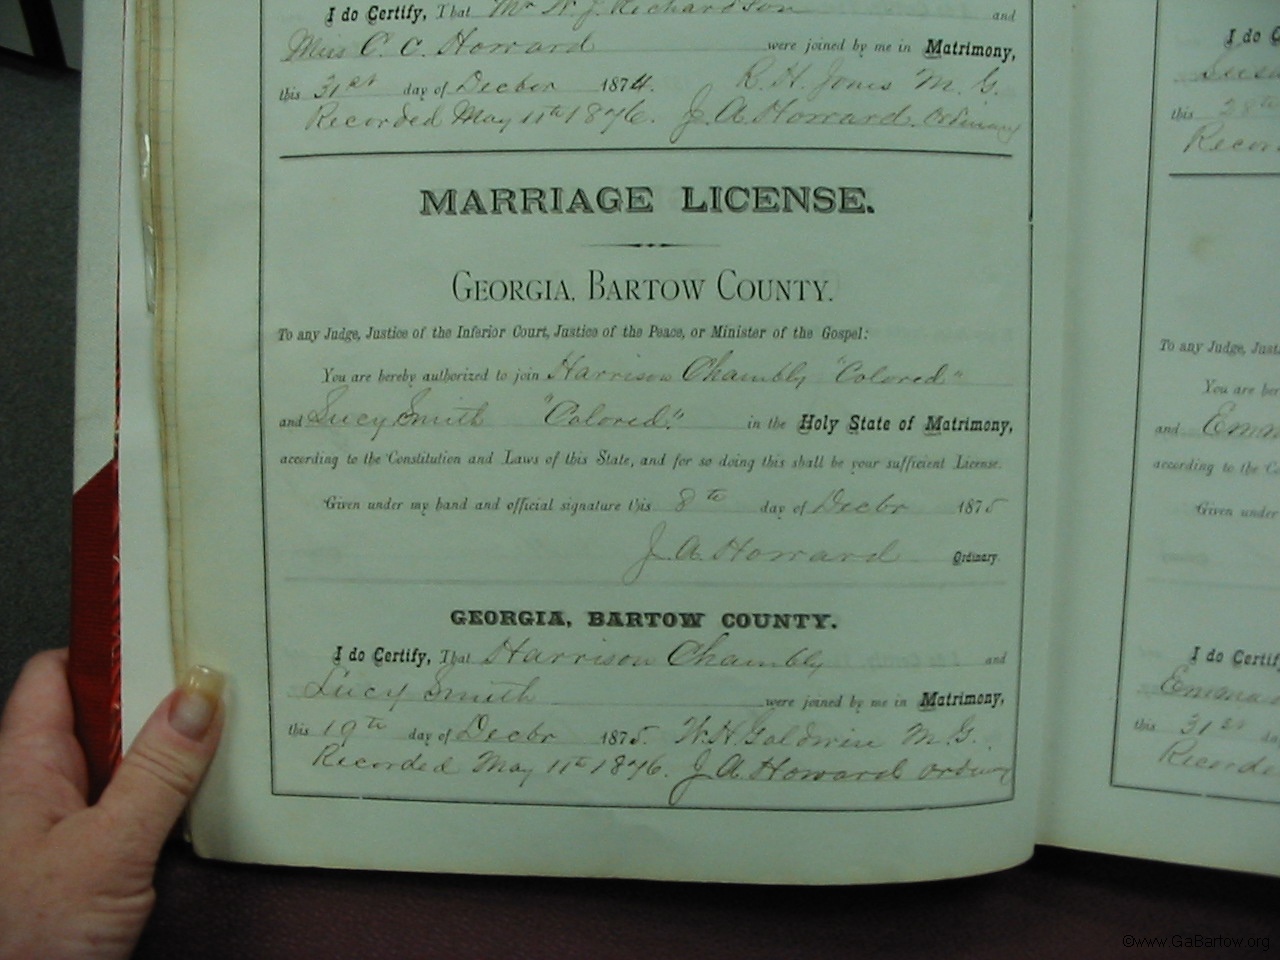 I do Certify, That Mr W. J. Richardson and
Miss C. C. Howard were joined by me in Matrimony,
this 31st day of Decber 1874. R. H. Jones M. G.
Recorded May 11th 1876. J. A. Howard. Ordinary
MARRIAGE LICENSE.
GEORGIA, BARTOW COUNTY.
To any Judge, Justice of the Inferior Court, Justice of the Peace, or Minister of the Gospel:
You are hereby authorized to join Harrison Chambly "Colored"
and Lucy Smith "Colored." in the Holy State of Matrimony,
according to the Constitution and Laws of this State, and for so doing this shall be your sufficient License.
Given under my hand and official signature this 8th day of Decbr 1875
J. A. Howard Ordinary
GEORGIA, BARTOW COUNTY.
I do Certify, That Harrison Chambly and
Lucy Smith were joined by me in Matrimony,
this 19th day of Decbr 1875. W. H. Goldwin M. G.
Recorded May 11th 1876. J. A. Howard Ordinary
I do
this 28th
To any Judge,
You are
and
according to the
Given under
I do
this 31st
©www.GaBartow.org